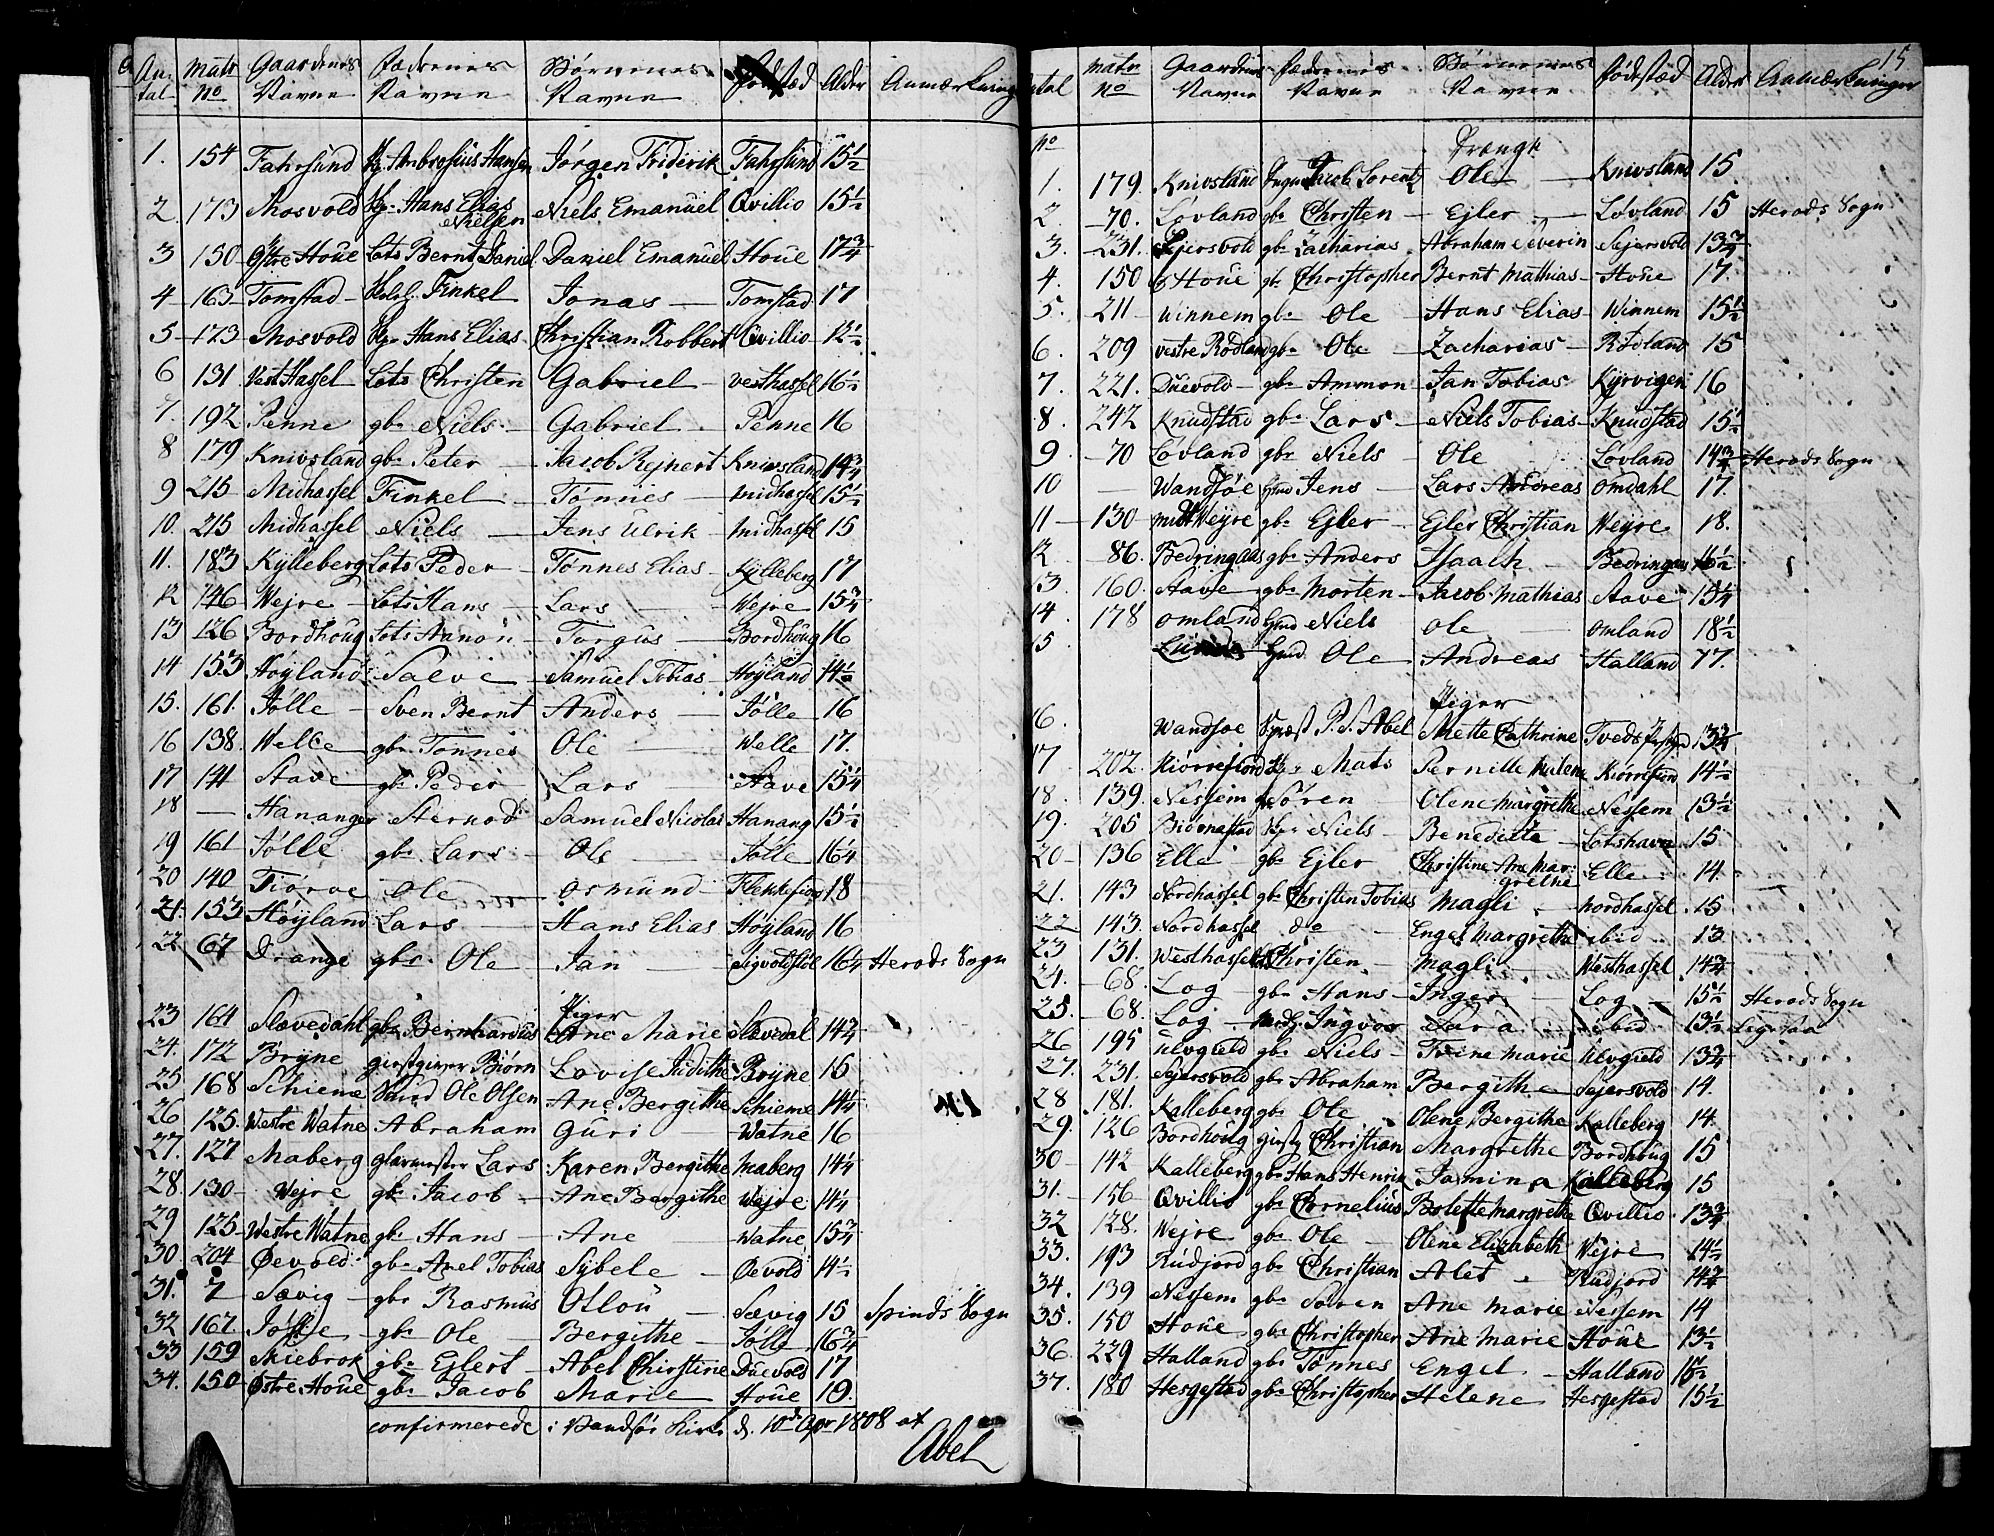 An- Matr Gaardenes Fædrenes Børnenes Fødsted Alder Anmærkning
tal No Navne Navne Navne
1. 154 Fahrsund Ambrosius Hansen Jørgen Friderik Fahrsund 15½
2. 173 Mosvold Hans Elias Nielsen Niels Emanuel Qvillio 15½
3 150 Østre Houe Lots Bernt Daniel Daniel Emanuel Houe 17¾
4 163 Tomstad Finkel Jonas Tomstad 17
5 173 Mosvold Hans Elias Christian Robbert Qvillio 12½
6 131 Vest Hassel Lots Christen Gabriel Vesthassel 16½
7. 192 Penne gbr Niels Gabriel Penne 16
8 179 Knivsland gbr Peter Jacob Rejnert Knivsland 14¾
9 215 Midhassel Finkel Tønnes Midhassel 15½
10. 215 Midhassel Niels Jens Ulrik Midhassel 15
11. 183 Kylleberg Lots Peder Tønnes Elias Kylleberg 17
12 146 Wejre Lots Hans Lars Wejre 15¾
13 126 Bordhoug Lots Aanon Torgus Bordhoug 16
14 153 Høyland Salve Samuel Tobias Høyland 14½
15. 161. Jølle Sven Bernt Anders Jølle 16
16 138. Welle gbr Tønnes Ole Welle 17.
17 141 Stave gbr Peder Lars Stave 15¼
18 Hananger Sterkod Samuel Nicolai Hanang 15½
19 161 Jølle gbr Lars Ole Jølle 16¼
20 140 Tiørve Ole Osmund Flekkefiord 18
21. 153 Høyland Lars Hans Elias Høyland 16
22 67 Drange gbr. Ole Jan Sigvoldsdal 16¼ Herads Sogn
Piger
23 164 Slævedahl gbr Bernhardus Ane Marie Slævedal 14¾
24. 172 Bryne giestgiver Biørn Lovise Judithe Bryne 16
25 168 Schieme Ole Olsen Ane Bergithe Schieme 14¼
26 125. Westre Watne Abraham Guri Watne 16
27. 127 Maberg glarmester Lars Karen Bergithe Maberg 14¼
28. 130 Wejre gbr Jacob Ane Bergithe Wejre 14¼
29 125 Westre Watne gbr Hans Ane Watne 15¾
30. 204 Øevold gbr Axel Tobias Sybele Øevold 14½
31. 7 Sævig gbr Rasmus Ollou Sævig 15 Spinds Sogn
32 167 Jølle gbr Ole Bergithe Jølle 16¾
33 159 Skiebrok gbr Ejlert Abel Christine Duevold 17
34. 150 Østre Houe gbr Jacob Marie Houe 19.
confirmerede i Vandsøe Kirke d. 10de Apr 1808 af
Abel
15
Antal Matr Gaardenes Fædrenes Børnenes Fødsted Alder Anmærkninger
No Navne Navne Navne
No Drenge
1. 179. Knivsland Jacob Lorentz Ole Knivsland 15
2 70. Løvland gbr Christen Ejler Løvland 15 Herads Sogn
3. 231. Sejersvold gbr Zacharias Abraham Severin Sejersvold 13¾
4. 150 Houe gbr Christopher Bernt Mathias Houe 17.
5. 211 Winnem gbr Ole Hans Elias Winnem 15½
6. 209 vestre Rødland gbr Ole Zacharias Rødland 15
7. 221. Duevold gbr Ammon Jan Tobias Kyrvigen 16
8. 242 Knudstad gbr Lars Niels Tobias Knudstad 15½
9. 70 Løvland gbr Niels Ole Løvland 14¾ Herads Sogn
10 Wandsøe Jens Lars Andreas Omdahl 17.
11 130 Mitt Weyre gbr Ejler Ejler Christian Weyre 18.
12 86. Bedringaas gbr Anders Isaach Bedringaas 16½
13. 160. Stave gbr Morten Jacob Mathias Stave 15¼
14. 178 Omland Hmd Niels Ole Omland 18½
15 Lunde Hmd Ole Andreas Halland 17.
Piger
16. Wandsøe P. S. Abel Mette Cathrine Tveds 13¾
17 202. Kiørrefiord Mats Pernille Kiørrefiord 14½
18. 139. Nessem Søren Olene Margrethe Nessem 13½
19. 205 Biørnestad Niels Benedicte Lotshavn 15
20 136 Elle gbr Ejler Christine Ane Margrethe Elle 14
21. 143 Nordhassel gbr Christen Tobias Magli Nordhassel 15
22 143. Nordhassel do Engel Margrethe ibid 13
23 131. Westhassel Christen Magli Westhassel 14¾
24. 68. Log gbr Hans Inger Log 15½ Herads Sogn
25. 68. Log Ingvor Sara ibid 13½ Ligesaa
26 195 Ulvgield gbr Niels Trine Marie Ulvgield 13¾
27. 231. Sejersvold gbr Abraham Bergithe Sejersvold 14.
28 181. Kalleberg gbr Ole Olene Bergithe Kalleberg 14.
29. 126 Bordhoug giestg Christian Margrethe Bordhoug 15
30 142 Kalleberg gbr Hans Henrik Jamina Kalleberg 15
31. 156 Qvillio gbr Cornelius Bolette Margrethe Qvillio 13¾
32 128. Wejre gbr Ole Olene Elizabeth Wejre 14½
33. 193 Rudjord gbr Christian Alet Rudjord 14¾
34. 139 Nessem gbr Søren Ane Marie Nessem 14
35. 150 Houe gbr Christopher Ane Marie Houe 13½
36. 229 Halland gbr Tønnes Engel Halland 15½
37. 180 Hesgestad gbr Christopher Helene Hesgestad 15½